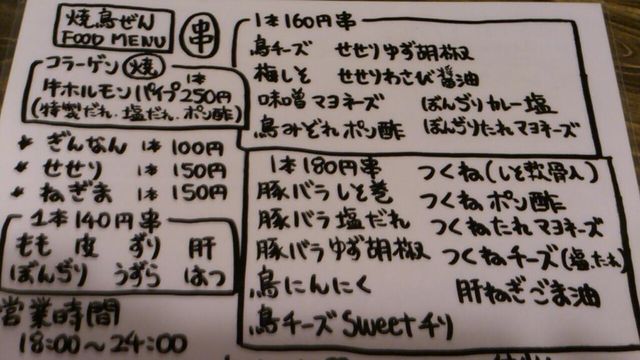 焼鳥ぜん
FOOD MENU
串
コラーゲン 焼
牛ホルモンパイプ 1本 250円
(特製だれ、塩だれ、ポン酢)
* ぎんなん 1本 100円
* せせり 1本 150円
* ねぎま 1本 150円
1本140円串
もも 皮 ずり 肝
ぼんぢり うずら はつ
営業時間
18:00〜24:00
1本160円串
鳥チーズ せせりゆず胡椒
梅しそ せせりわさび醤油
味噌マヨネーズ ぼんぢりカレー塩
鳥みぞれポン酢 ぼんぢりたれマヨネーズ
1本180円串
つくね(しそ軟骨入)
豚バラしそ巻 つくねポン酢
豚バラ塩だれ つくねたれマヨネーズ
豚バラゆず胡椒 つくねチーズ(塩、たれ)
鳥にんにく 肝ねぎごま油
鳥チーズSweetチリ